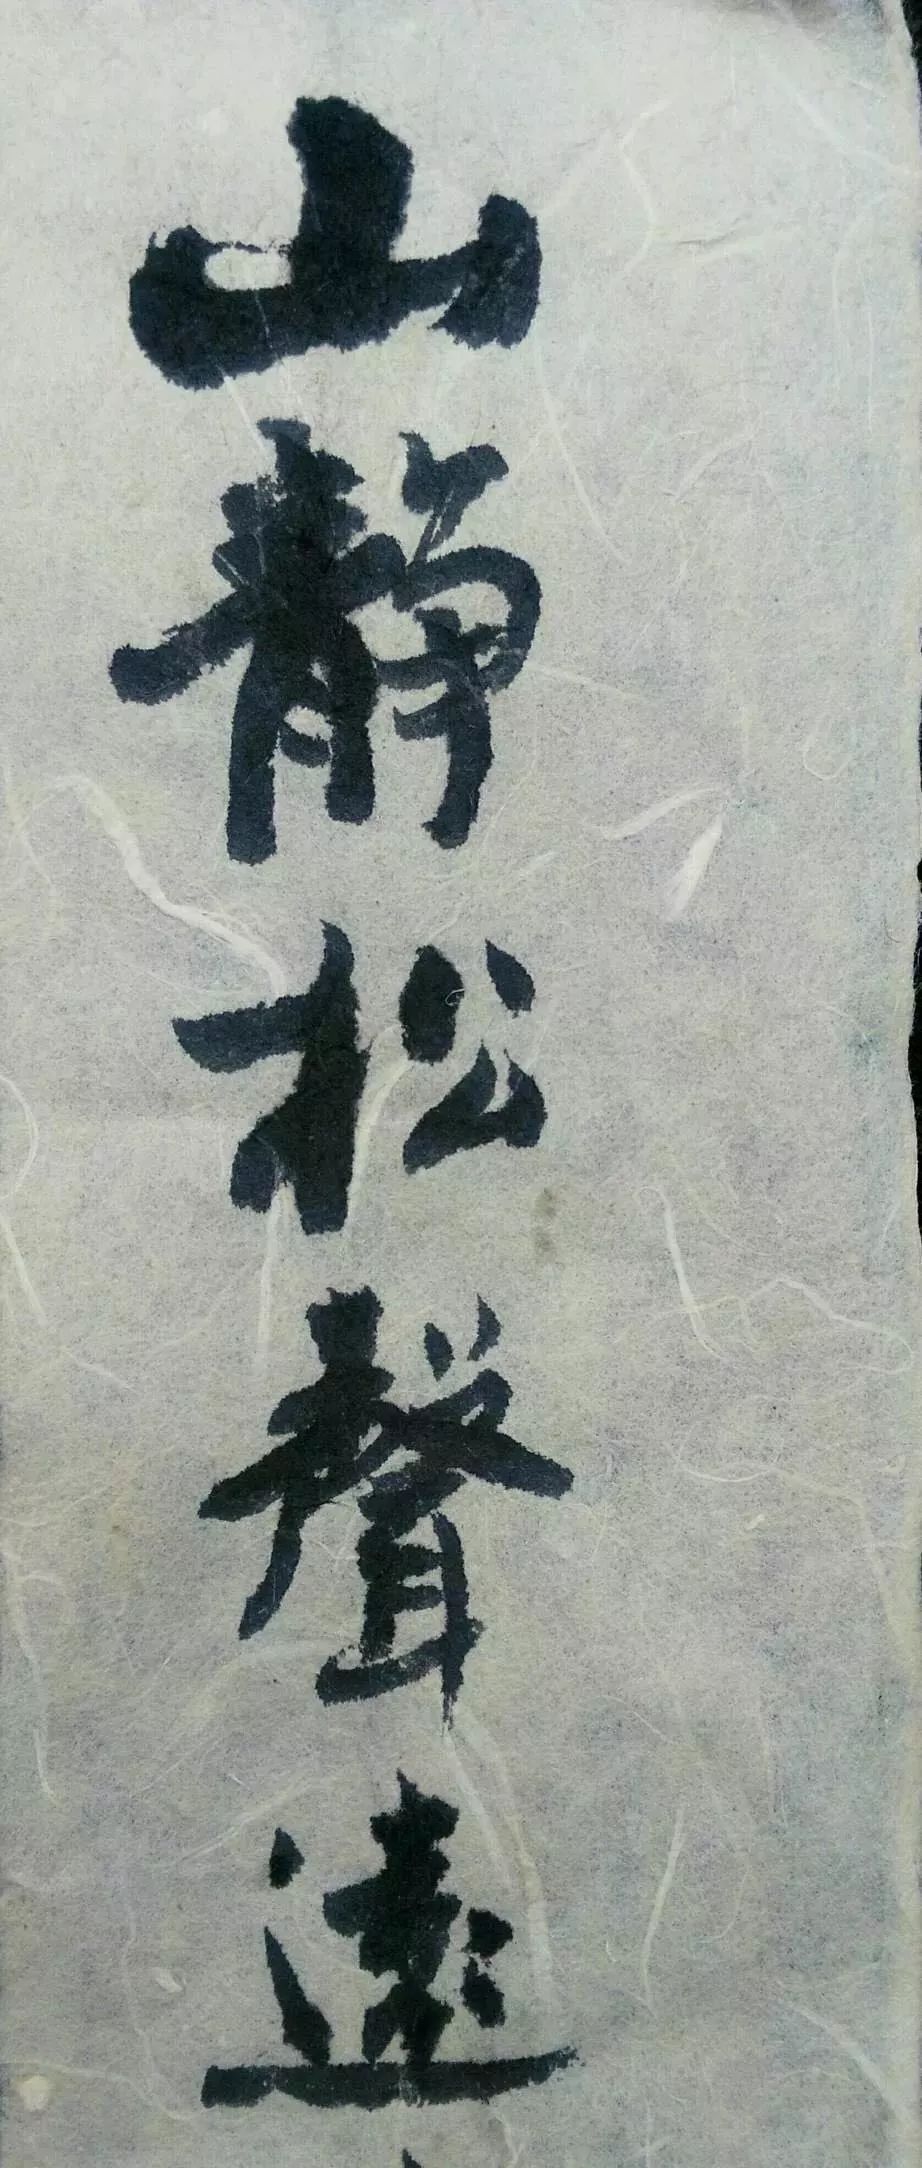 山静松聲遠